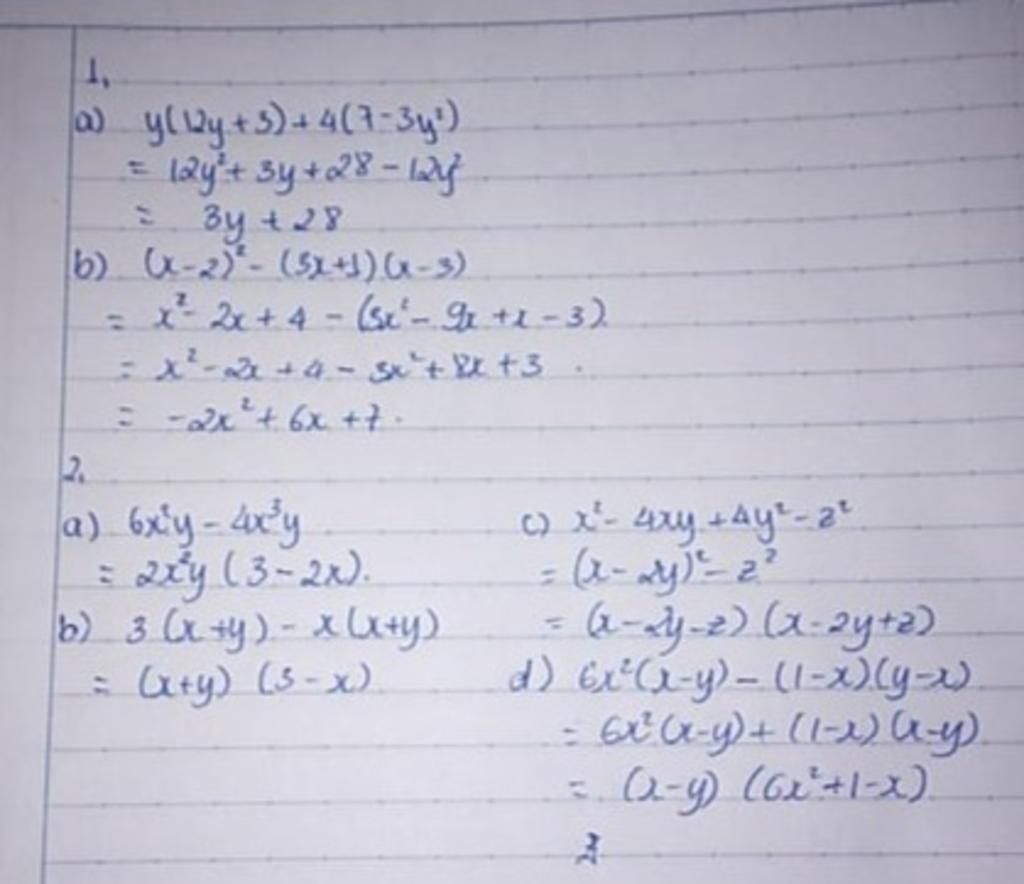 1.
a) y(12y+3)+4(7-3y²)
= 12y²+3y+28-12y²
= 3y+28
b) (x-2)² - (3x+1)(x-3)
= x² - 2x + 4 - (3x² - 9x + x - 3)
= x² - 2x + 4 - 3x² + 8x + 3.
= -2x² + 6x + 7.
2.
a) 6x²y - 4x³y
= 2x²y (3-2x).
b) 3(x+y) - x(x+y)
= (x+y) (3-x)
c) x² - 4xy + 4y² - z²
= (x-2y)² - z²
= (x-2y-z) (x-2y+z)
d) 6x²(x-y) - (1-x)(y-x)
= 6x²(x-y) + (1-x)(x-y)
= (x-y) (6x²+1-x)